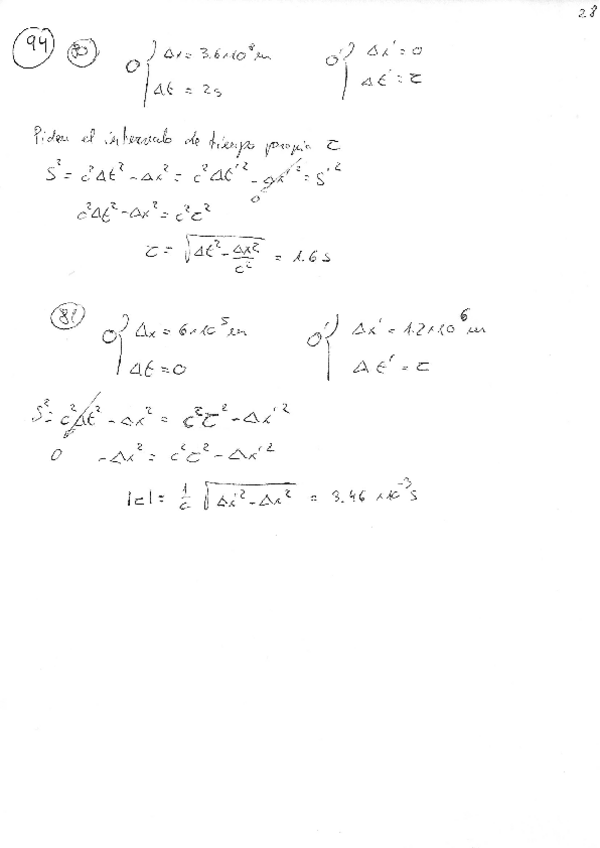 28
94 80 O { Δx = 3.6×10⁸ m O' { Δx' = 0
Δt = 2s Δt' = τ
Piden el intervalo de tiempo propio τ
S² = c²Δt² - Δx² = c²Δt'² - Δx'² = S'²
0
c²Δt² - Δx² = c²τ²
τ = √(Δt² - Δx²/c²) = 1.6 s
81 O { Δx = 6×10⁵ m O' { Δx' = 1.2×10⁶ m
Δt = 0 Δt' = τ
S² = c²Δt² - Δx² = c²τ² - Δx'²
0 -Δx² = c²τ² - Δx'²
|τ| = 1/c √(Δx'² - Δx²) = 3.46 ×10⁻³ s